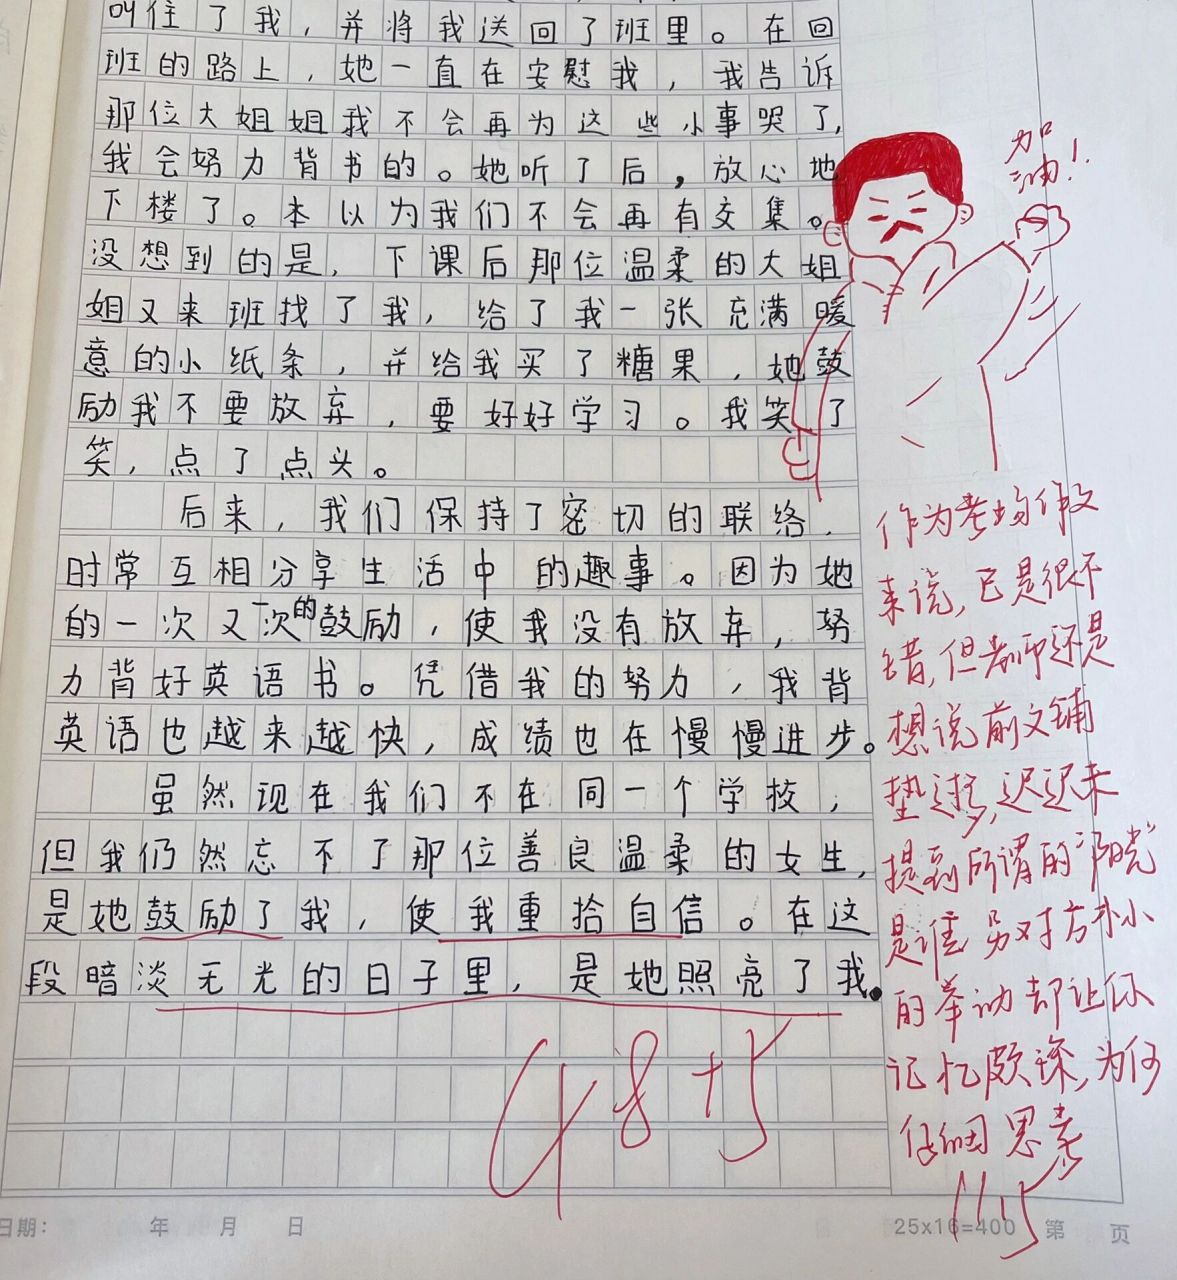 叫住了我，并将我送回了班里。在回
班的路上，她一直在安慰我，我告诉
那位大姐姐我不会再为这些小事哭了，
我会努力背书的。她听了后，放心地
下楼了。本以为我们不会再有交集。
没想到的是，下课后那位温柔的大姐
姐又来班找了我，给了我一张充满暖
意的小纸条，并给我买了糖果，她鼓
励我不要放弃，要好好学习。我笑了
笑，点了点头。
后来，我们保持了密切的联络，
时常互相分享生活中的趣事。因为她
的一次又一次的鼓励，使我没有放弃，努
力背好英语书。凭借我的努力，我背
英语也越来越快，成绩也在慢慢进步。
虽然现在我们不在同一个学校，
但我仍然忘不了那位善良温柔的女生，
是她鼓励了我，使我重拾自信。在这
段暗淡无光的日子里，是她照亮了我。
加油！
作为考场作文
来说，已是很不
错，但老师还是
想说前文铺
垫过多，迟迟未
提到所谓的“阳光”
是谁 另对方小小
的举动却让你
记忆颇深，为何
仔细思考
48+5
11.5
日期： 年 月 日
25x16=400 第 页